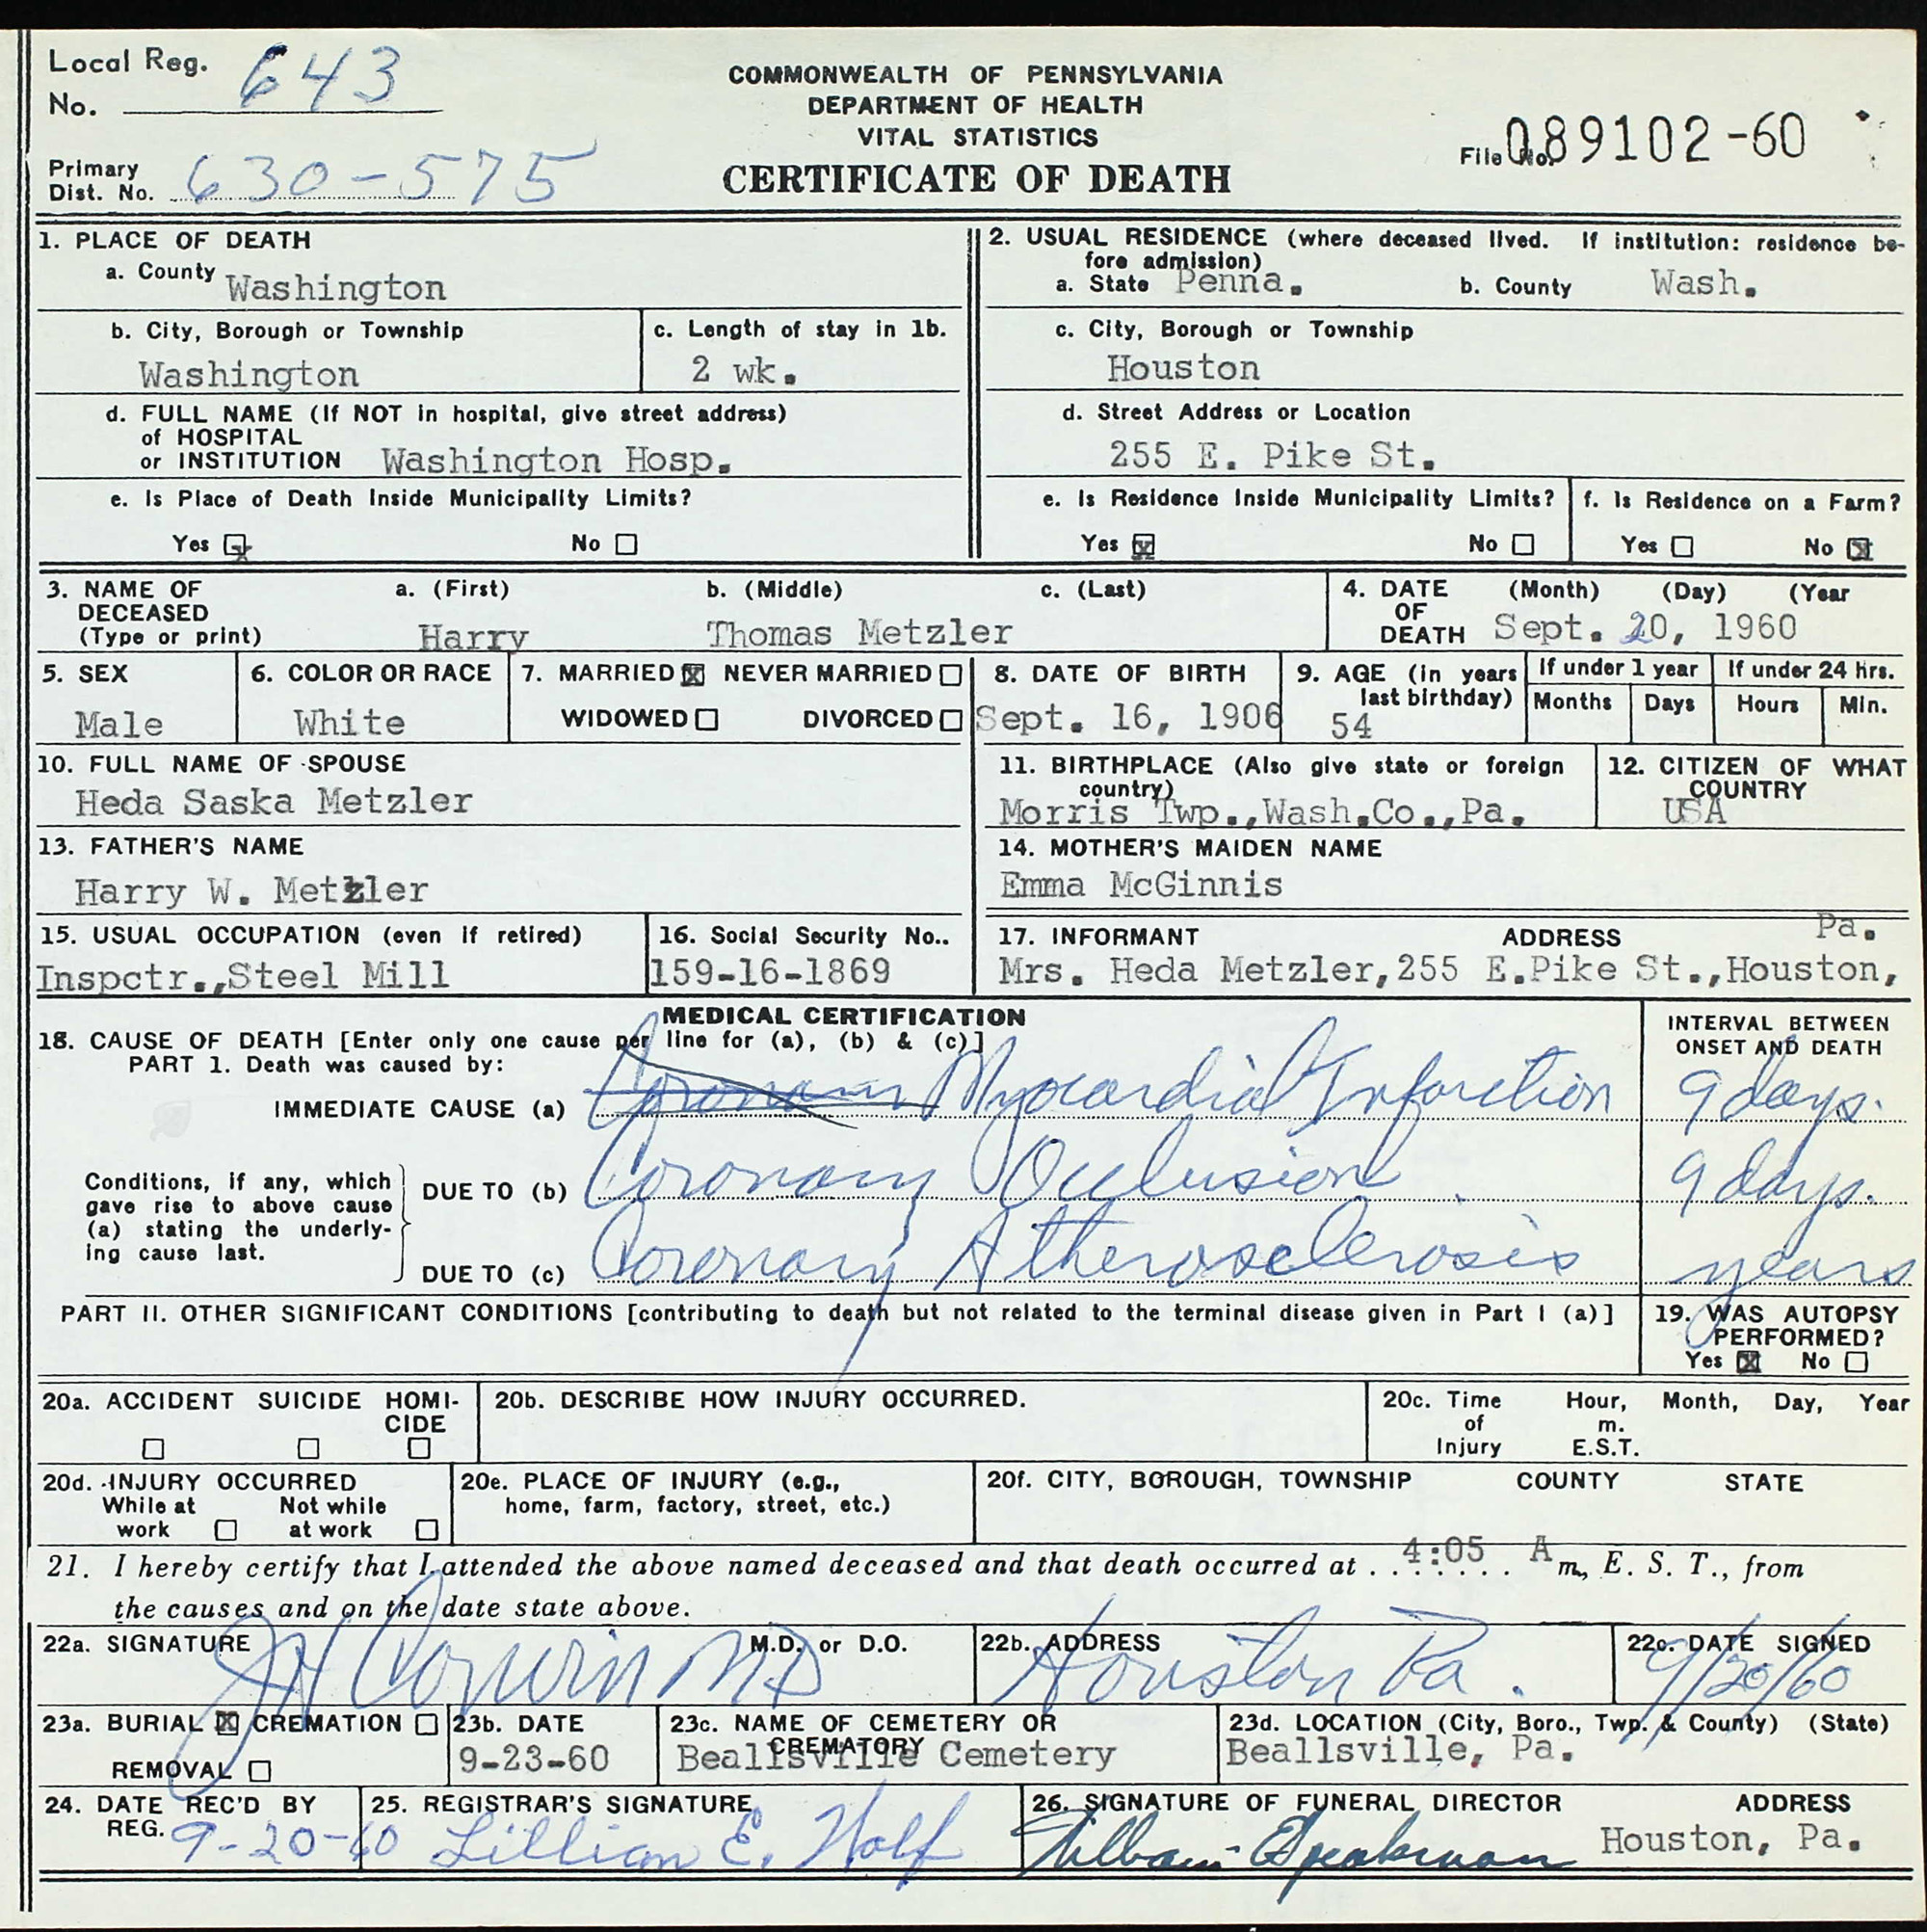 Local Reg. No. 643
COMMONWEALTH OF PENNSYLVANIA
DEPARTMENT OF HEALTH
VITAL STATISTICS
CERTIFICATE OF DEATH
File No. 089102-60
Primary Dist. No. 630-575
1. PLACE OF DEATH
a. County Washington
b. City, Borough or Township
Washington
c. Length of stay in 1b.
2 wk.
d. FULL NAME (If NOT in hospital, give street address)
of HOSPITAL
or INSTITUTION Washington Hosp.
e. Is Place of Death Inside Municipality Limits?
Yes ☒ No ☐
2. USUAL RESIDENCE (where deceased lived. If institution: residence be-
fore admission)
a. State Penna. b. County Wash.
c. City, Borough or Township
Houston
d. Street Address or Location
255 E. Pike St.
e. Is Residence Inside Municipality Limits?
Yes ☒ No ☐
f. Is Residence on a Farm?
Yes ☐ No ☒
3. NAME OF DECEASED (Type or print)
a. (First) b. (Middle) c. (Last)
Harry Thomas Metzler
4. DATE OF DEATH (Month) (Day) (Year
Sept. 20, 1960
5. SEX
Male
6. COLOR OR RACE
White
7. MARRIED ☒ NEVER MARRIED ☐
WIDOWED ☐ DIVORCED ☐
8. DATE OF BIRTH
Sept. 16, 1906
9. AGE (in years last birthday)
54
If under 1 year
Months Days
If under 24 hrs.
Hours Min.
10. FULL NAME OF SPOUSE
Heda Saska Metzler
11. BIRTHPLACE (Also give state or foreign country)
Morris Twp.,Wash.Co.,Pa.
12. CITIZEN OF WHAT COUNTRY
USA
13. FATHER'S NAME
Harry W. Metzler
14. MOTHER'S MAIDEN NAME
Emma McGinnis
15. USUAL OCCUPATION (even if retired)
Inspctr.,Steel Mill
16. Social Security No..
159-16-1869
17. INFORMANT ADDRESS Pa.
Mrs. Heda Metzler,255 E.Pike St.,Houston,
MEDICAL CERTIFICATION
18. CAUSE OF DEATH [Enter only one cause per line for (a), (b) & (c)]
INTERVAL BETWEEN
ONSET AND DEATH
PART 1. Death was caused by:
IMMEDIATE CAUSE (a) Coronary Myocardial Infarction 9 days.
Conditions, if any, which
gave rise to above cause
(a) stating the underly-
ing cause last.
DUE TO (b) Coronary Occlusion. 9 days.
DUE TO (c) Coronary Atherosclerosis years
PART II. OTHER SIGNIFICANT CONDITIONS [contributing to death but not related to the terminal disease given in Part I (a)]
19. WAS AUTOPSY PERFORMED?
Yes ☒ No ☐
20a. ACCIDENT SUICIDE HOMI-
CIDE
☐ ☐ ☐
20b. DESCRIBE HOW INJURY OCCURRED.
20c. Time of Injury Hour, m. E.S.T. Month, Day, Year
20d. INJURY OCCURRED
While at work ☐ Not while at work ☐
20e. PLACE OF INJURY (e.g.,
home, farm, factory, street, etc.)
20f. CITY, BOROUGH, TOWNSHIP COUNTY STATE
21. I hereby certify that I attended the above named deceased and that death occurred at 4:05 A m., E. S. T., from
the causes and on the date state above.
22a. SIGNATURE M.D. or D.O.
JH Corwin MD
22b. ADDRESS
Houston Pa.
22c. DATE SIGNED
9/20/60
23a. BURIAL ☒ CREMATION ☐
REMOVAL ☐
23b. DATE
9-23-60
23c. NAME OF CEMETERY OR CREMATORY
Beallsville Cemetery
23d. LOCATION (City, Boro., Twp. & County) (State)
Beallsville, Pa.
24. DATE REC'D BY REG.
9-20-60
25. REGISTRAR'S SIGNATURE
Lillian E.
26. SIGNATURE OF FUNERAL DIRECTOR ADDRESS
Speakman Houston, Pa.